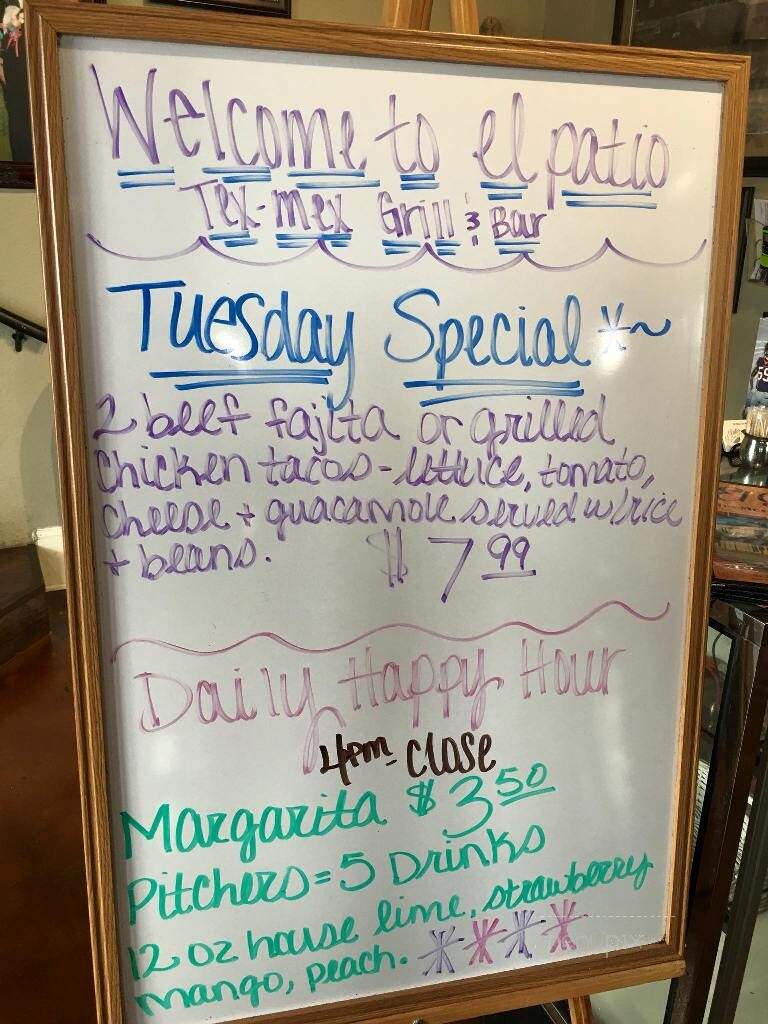 Welcome to el patio
Tex-Mex Grill & Bar
Tuesday Special
2 beef fajita or grilled
chicken tacos - lettuce, tomato,
cheese + guacamole served w/rice
+ beans. $ 7 99
Daily Happy Hour
4pm - close
Margarita $ 3 50
Pitchers = 5 Drinks
12 oz house lime, strawberry
mango, peach.